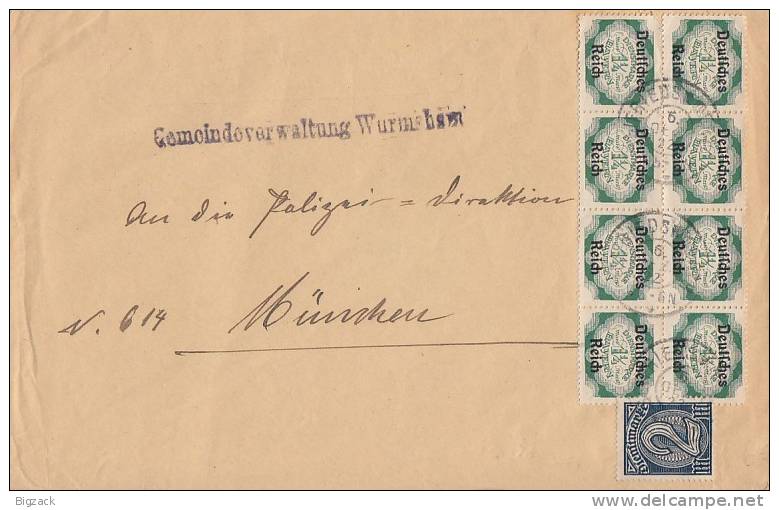 Gemeindeverwaltung Wurmsham
An die Polizei = Direktion
N. 614
München
Deutsches Reich
Deutsches Reich
1¼
1¼
Deutsches Reich
Deutsches Reich
1¼
1¼
Deutsches Reich
Deutsches Reich
1¼
1¼
Deutsches Reich
Deutsches Reich
1¼
1¼
2
Bigzack
delcampe.net